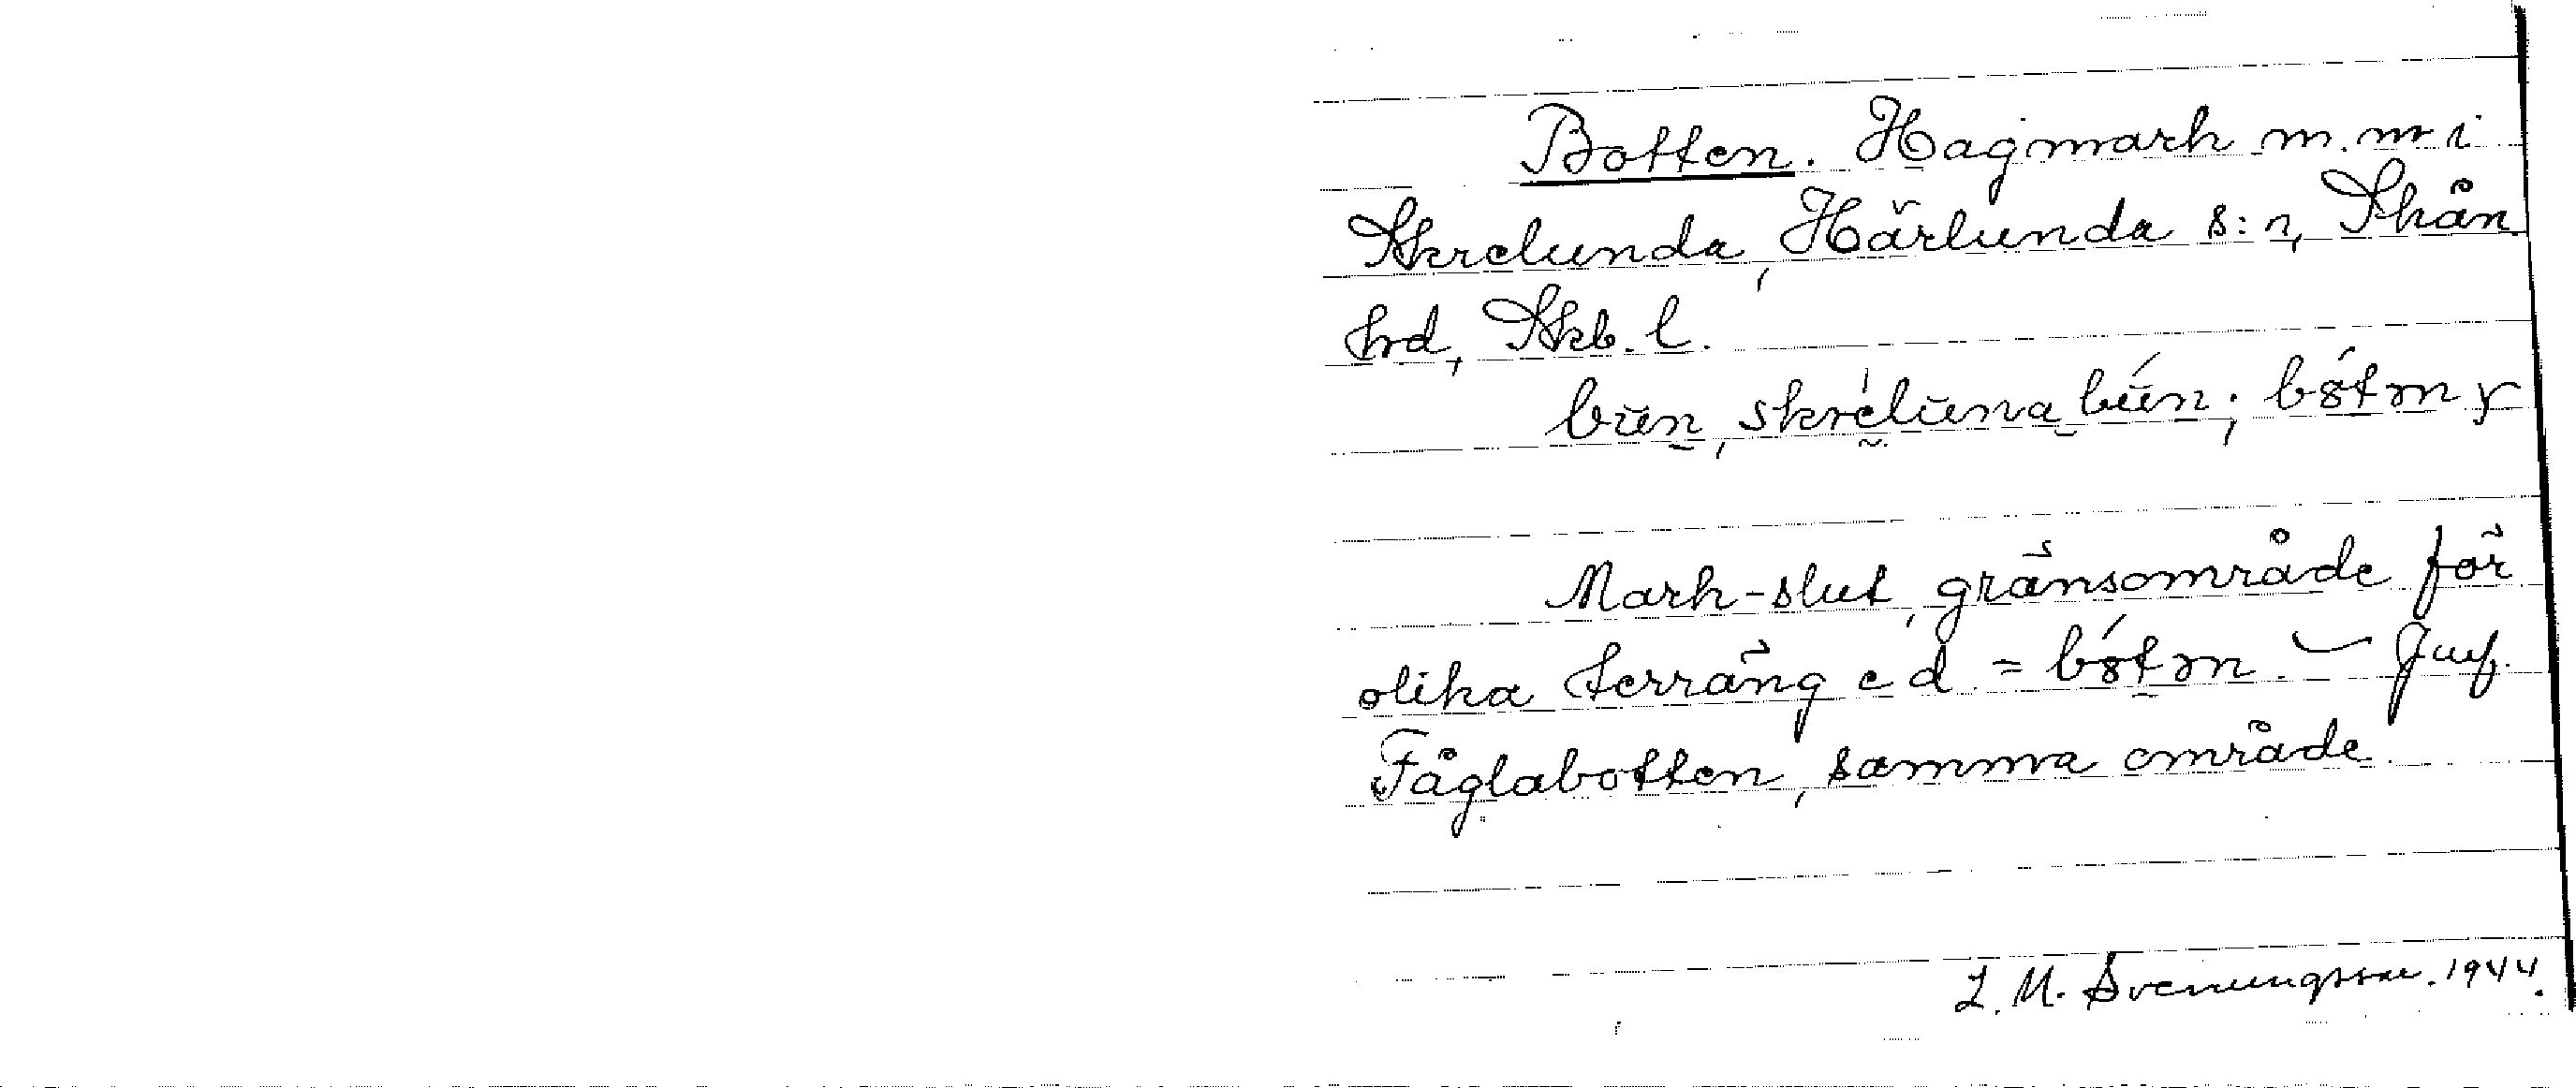 Botten. Hagmark m.m i
Skrelunda, Härlunda s:n, Skån.
hrd, Skb. l.
bŭn, skrĕluna bŭn;
Mark-slut, gränsområde för
olika terräng e d = – Jmf.
Fåglabotten, samma område
L. M. Svenungsson. 1944.